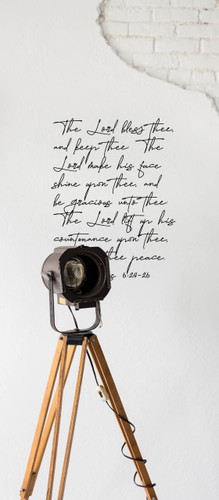 The Lord bless thee,
and keep thee The
Lord make his face
shine upon thee, and
be gracious unto thee
The Lord lift up his
countenance upon thee,
thee peace.
s 6:24-26